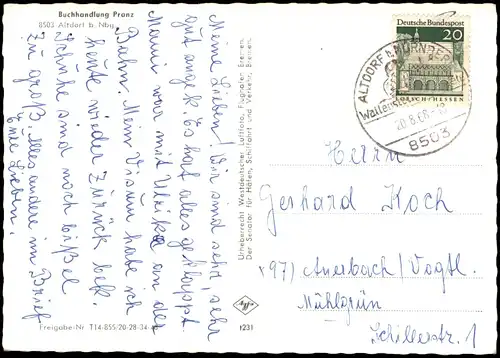 Buchhandlung Pranz
8503 Altdorf b. Nbg.
Meine Lieben! Wir sind sehr, sehr
gut angek. Es hat alles geklappt.
Mami war mit Ulrike an der
Bahn. Mein Visum habe ich
heute wieder zurück bek.
Schuhe sind noch bißel
zu groß. Alles andere im Brief
Eure Lieben.
Freigabe-Nr. T14-855-20-28-34-
Urheberrecht Westdeutscher Luftfoto, Flughafen Bremen
Der Senator für Häfen, Schiffahrt und Verkehr, Bremen.
Agfa
t231
Deutsche Bundespost
20
LORSCH/HESSEN
ALTDORF b. NÜRNBERG
Wallenstein
20.8.68
8503
Herrn
Gerhard Koch
(97) Auerbach/Vogtl.
Mühlgrün
Schillerstr. 1